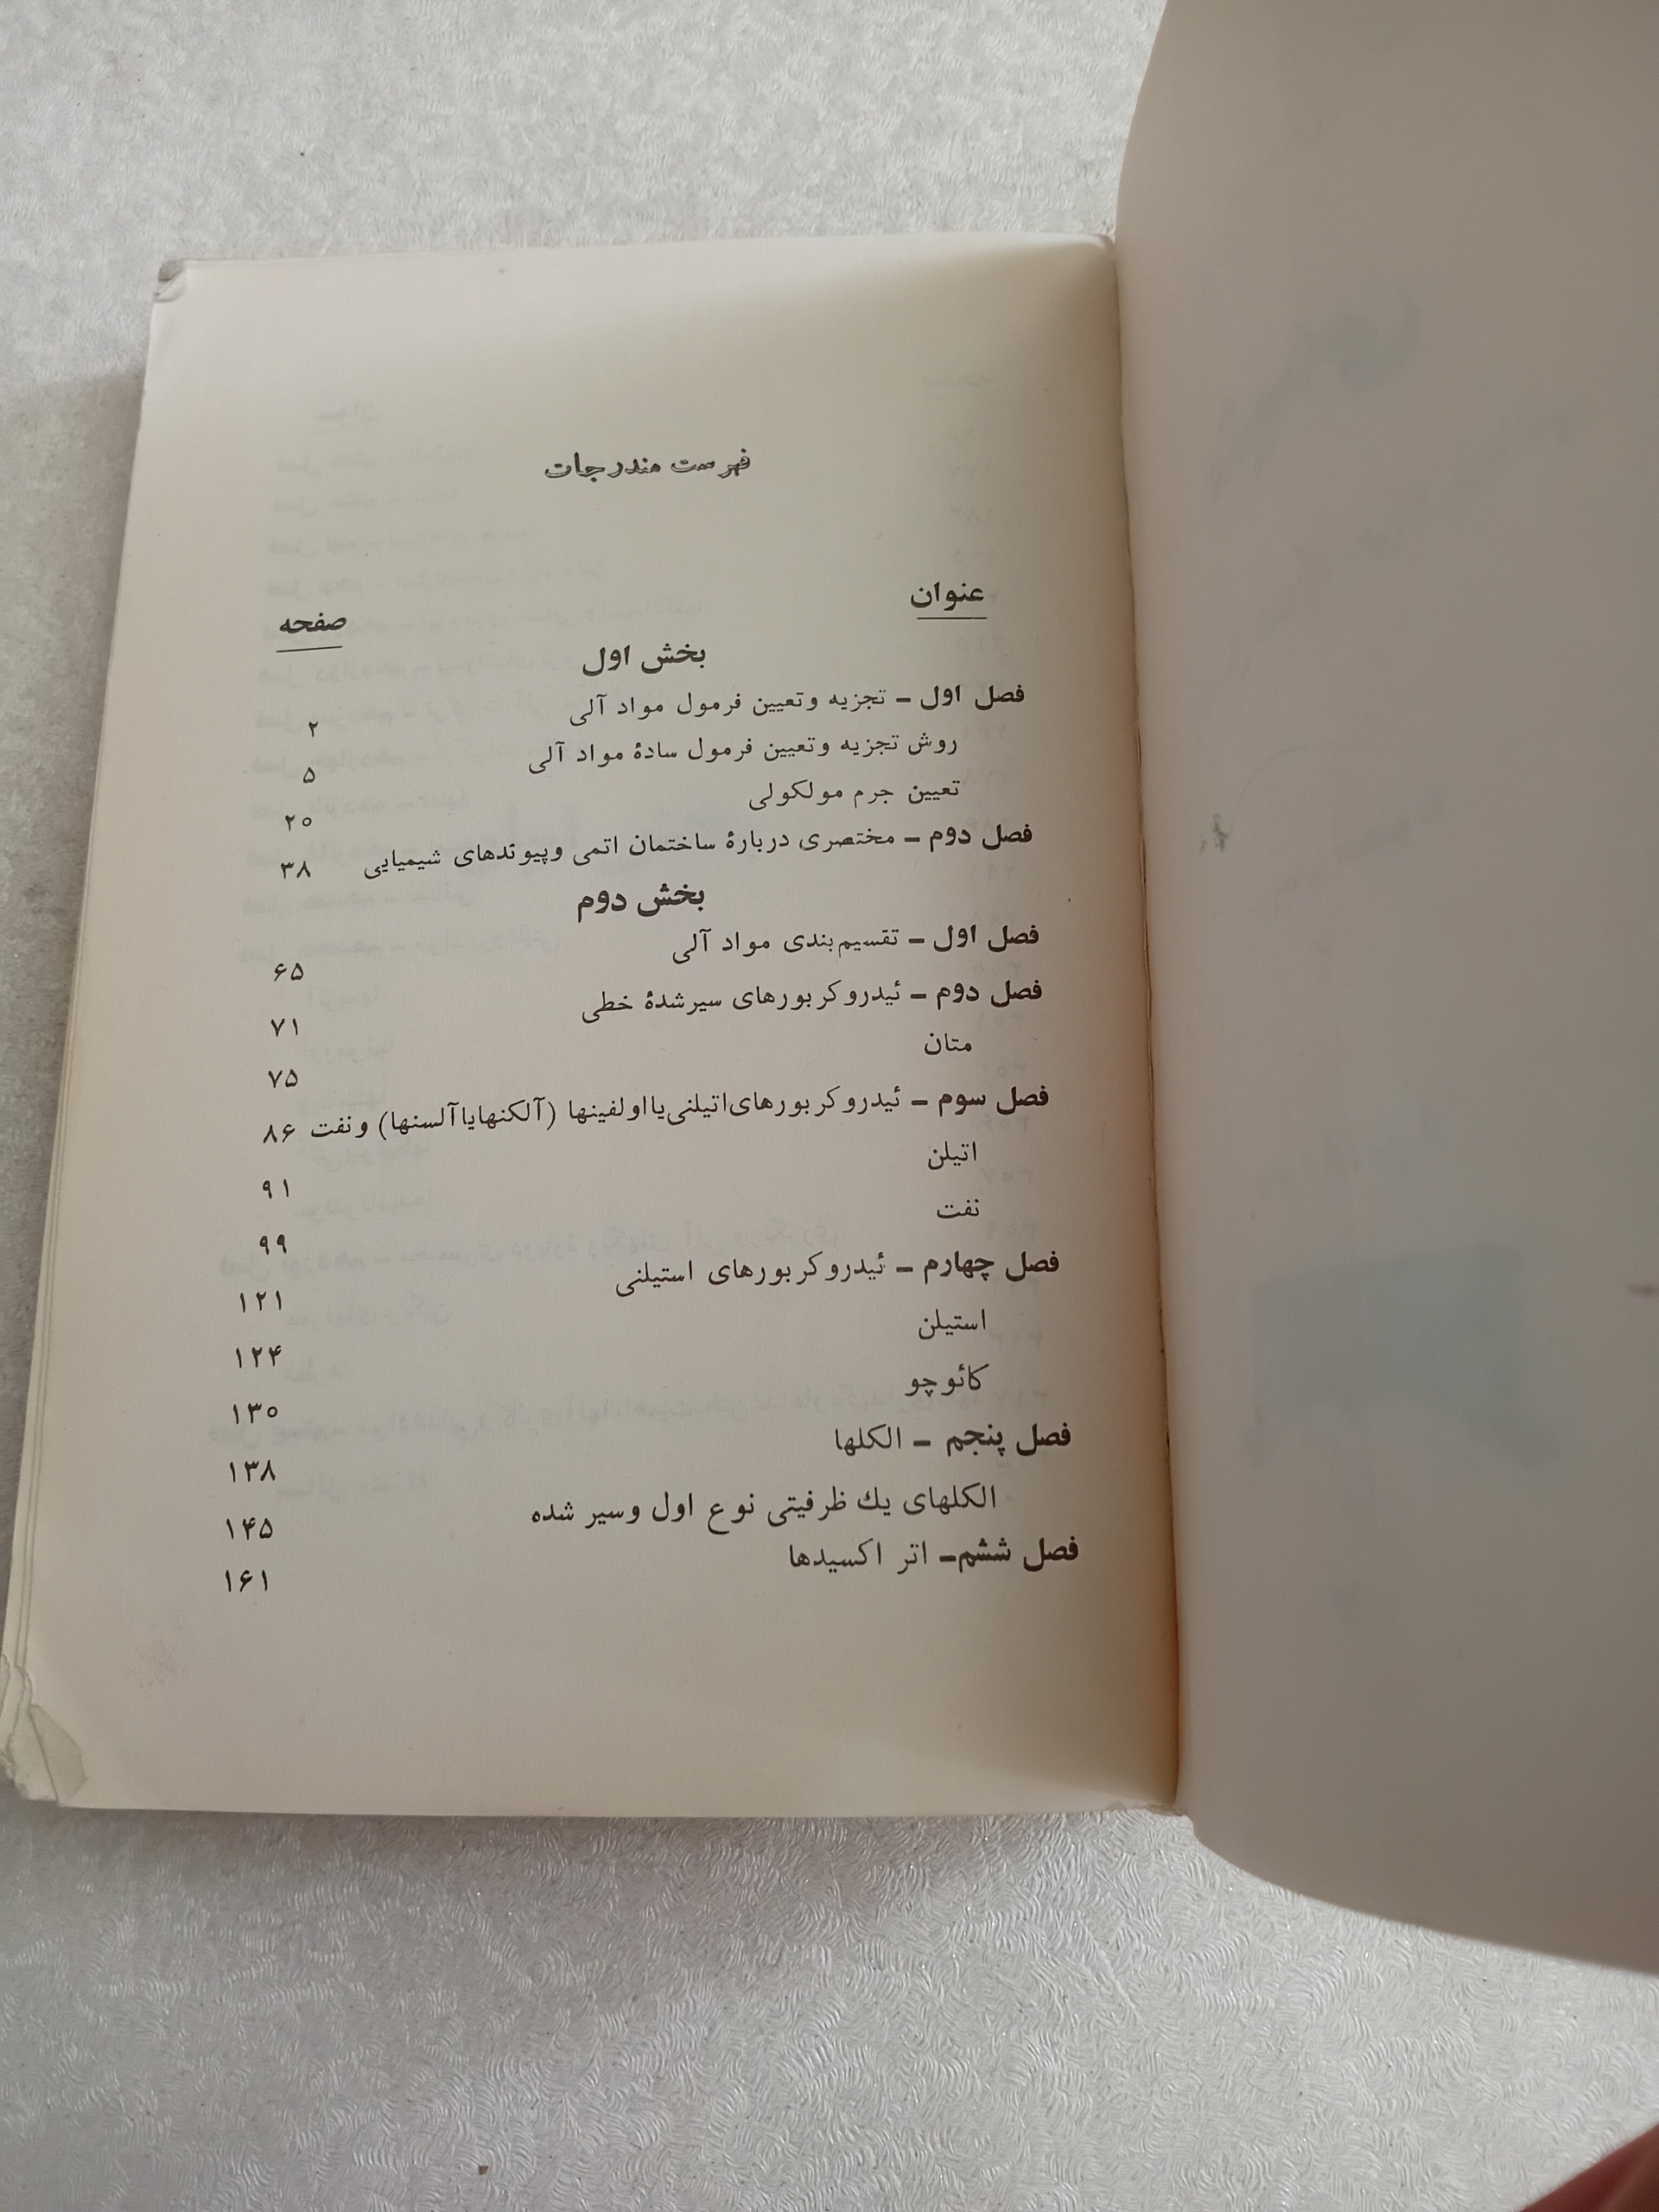 فهرست مندرجات
عنوان
صفحه
بخش اول
فصل اول – تجزیه وتعیین فرمول مواد آلی ۲
روش تجزیه وتعیین فرمول سادۀ مواد آلی ۵
تعیین جرم مولکولی ۲۰
فصل دوم – مختصری دربارۀ ساختمان اتمی وپیوندهای شیمیایی ۳۸
بخش دوم
فصل اول – تقسیم‌بندی مواد آلی ۶۵
فصل دوم – ئیدروکربورهای سیرشدۀ خطی ۷۱
متان ۷۵
فصل سوم – ئیدروکربورهای‌اتیلنی‌یااولفینها (آلکنهایاآلسنها) ونفت ۸۶
اتیلن ۹۱
نفت ۹۹
فصل چهارم – ئیدروکربورهای استیلنی ۱۲۱
استیلن ۱۲۴
کائوچو ۱۳۰
فصل پنجم – الکلها ۱۳۸
الکلهای یك ظرفیتی نوع اول وسیر شده ۱۴۵
فصل ششم– اتر اکسیدها ۱۶۱